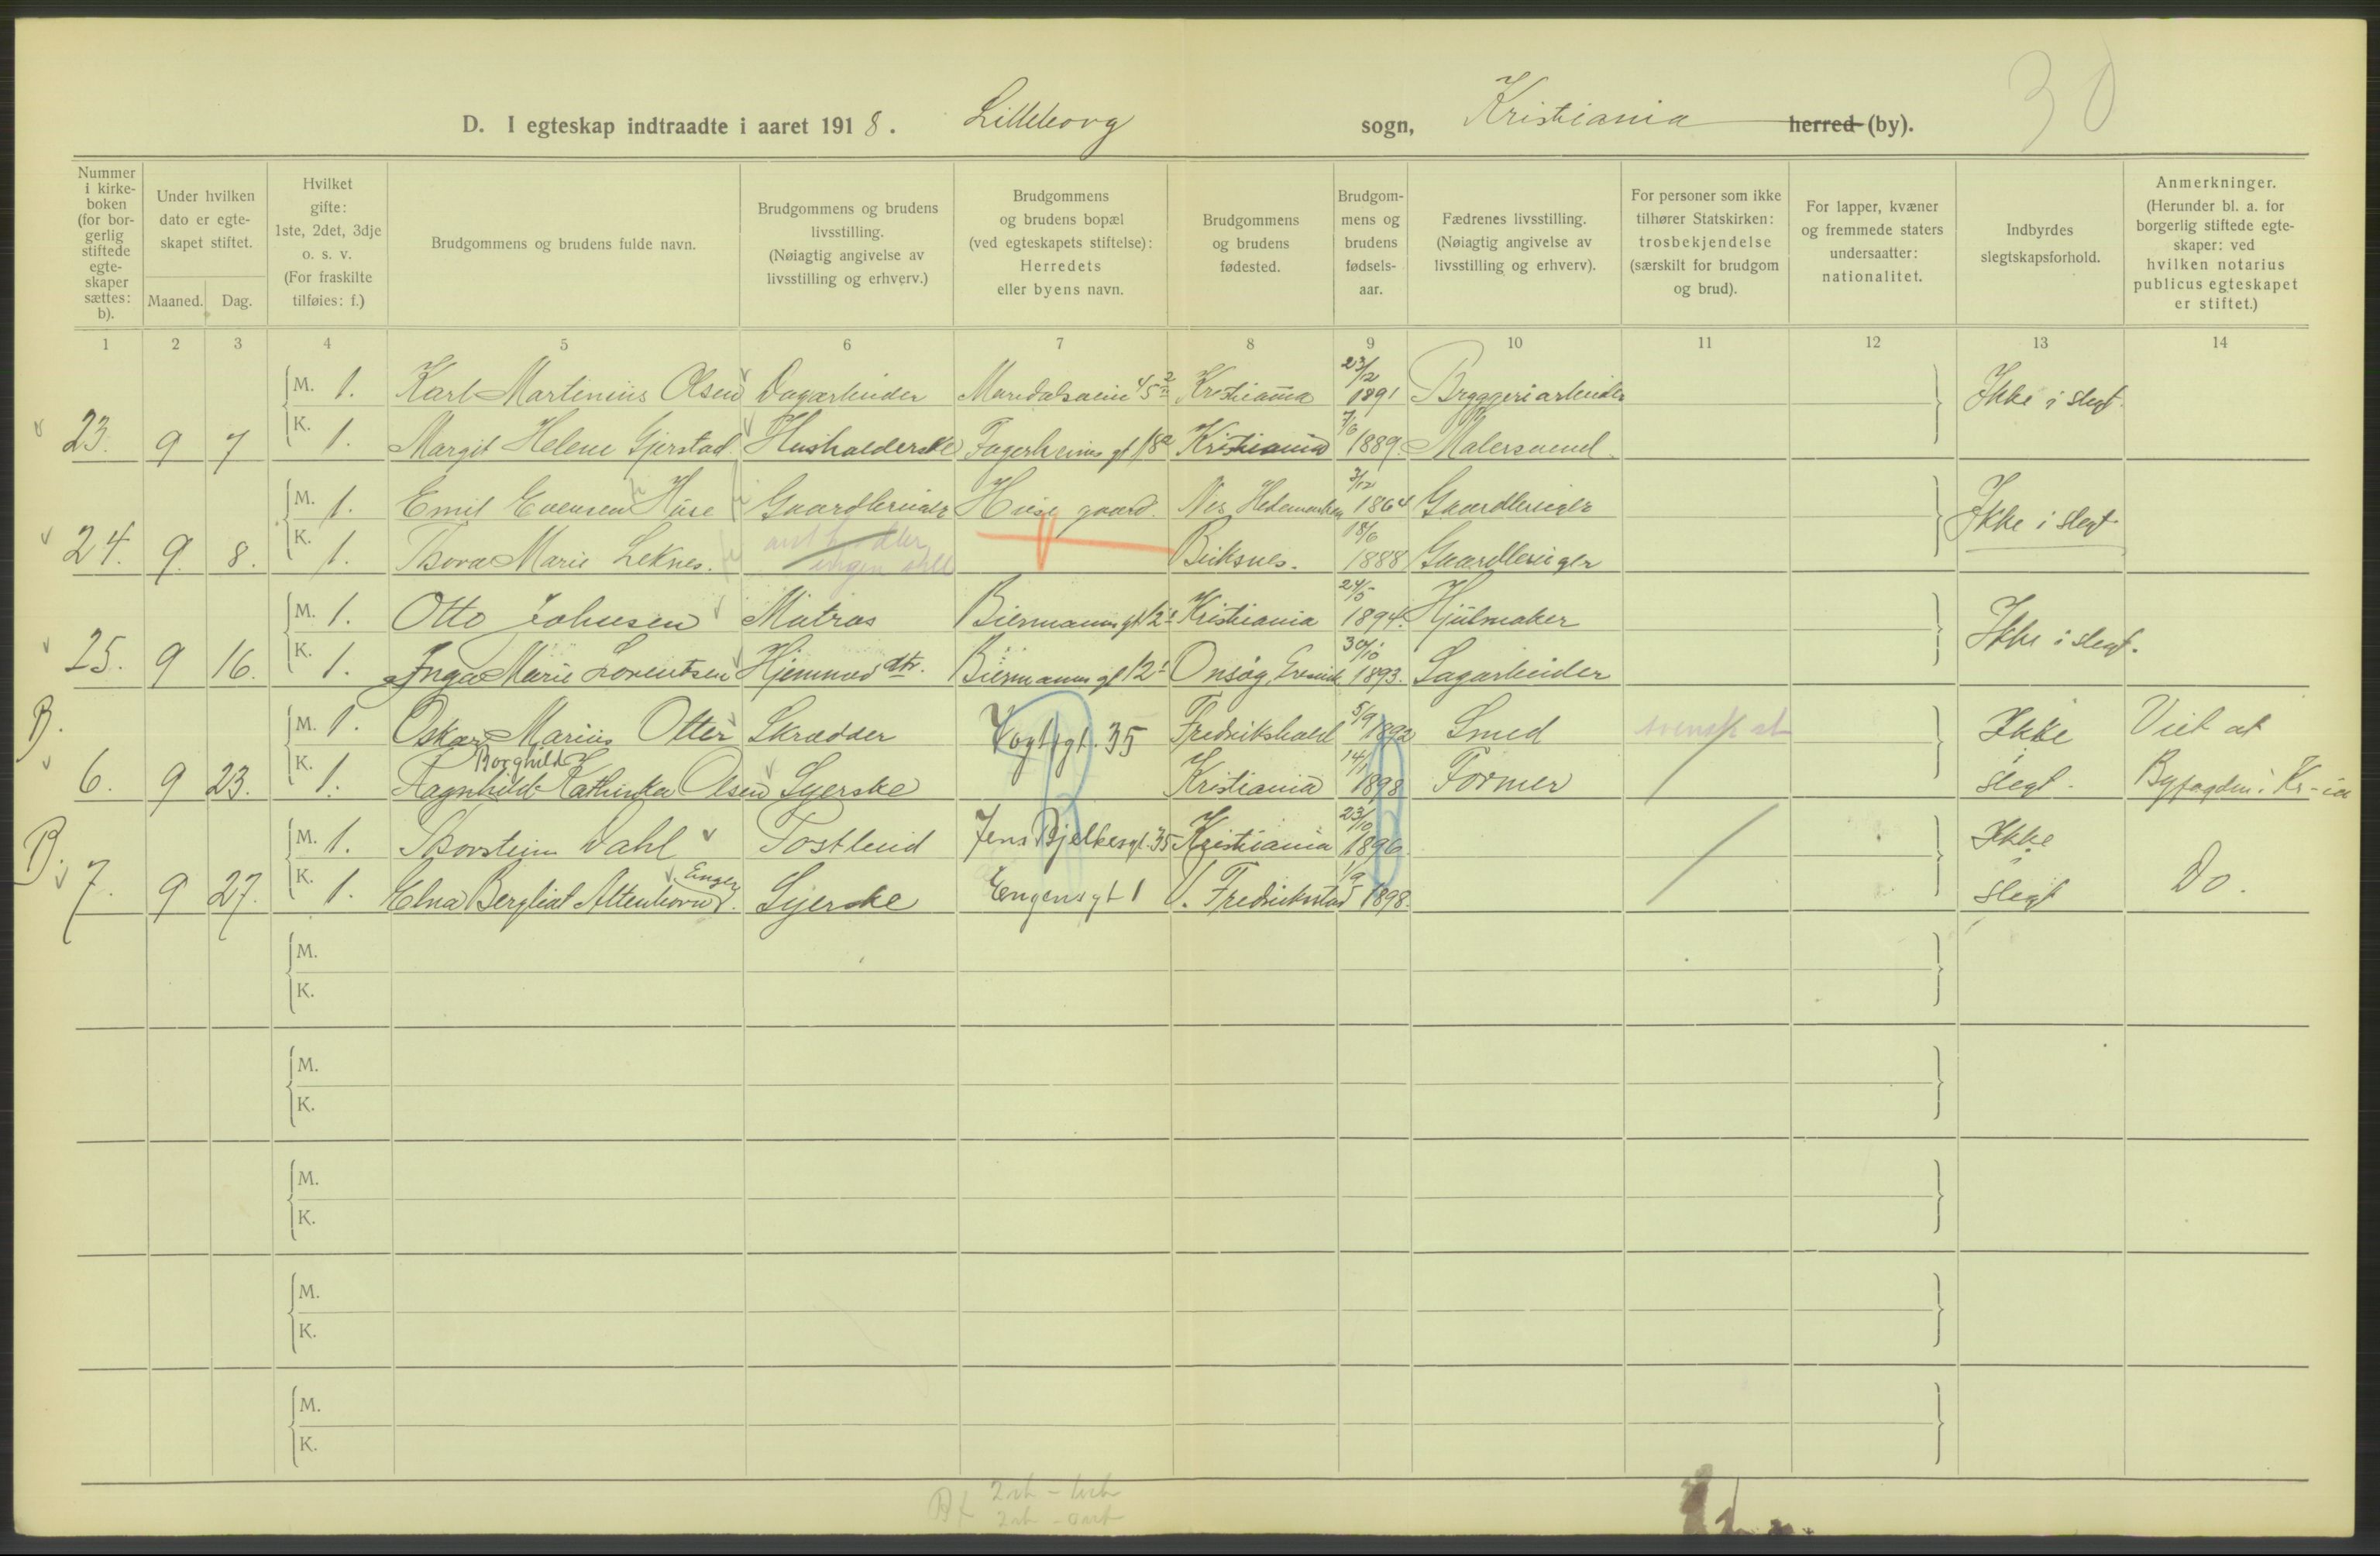 30
D. I egteskap indtraadte i aaret 1918. Lilleborg sogn, Kristiania herred (by).
Nummer i kirke-boken (for bor-gerlig stiftede egte-skaper sættes: b).
Under hvilken dato er egte-skapet stiftet.
Maaned. Dag.
Hvilket gifte: 1ste, 2det, 3dje o. s. v. (For fraskilte tilføies: f.)
Brudgommens og brudens fulde navn.
Brudgommens og brudens livsstilling. (Nøiagtig angivelse av livsstilling og erhverv.)
Brudgommens og brudens bopæl (ved egteskapets stiftelse): Herredets eller byens navn.
Brudgommens og brudens fødested.
Brudgom-mens og brudens fødsels-aar.
Fædrenes livsstilling. (Nøiagtig angivelse av livsstilling og erhverv).
For personer som ikke tilhører Statskirken: trosbekjendelse (særskilt for brudgom og brud).
For lapper, kvæner og fremmede staters undersaatter: nationalitet.
Indbyrdes slegtskapsforhold.
Anmerkninger. (Herunder bl. a. for borgerlig stiftede egte-skaper: ved hvilken notarius publicus egteskapet er stiftet.)
1 2 3 4 5 6 7 8 9 10 11 12 13 14
M. 1. Karl Martinius Olsen Dagarbeider Maridalsveien 45 2 Kristiania 23/12 1891 Bryggeriarbeider Ikke i slegt.
23. 9 7 K. 1. Margit Helene Gjerstad Husholderske Fagerheims gt 18 2 Kristiania 7/6 1889. Malersvend.
M. 1. Emil Evensen Huse Gaardbruger Huse gaard. Nes Hedemarken 3/12 1864 Gaardbruger Ikke i slegt
24. 9. 8. K. 1. Thora Marie Leknes. ingen still Buksnes. 18/6 1888 Gaardbruger
M. 1. Otto Johnsen Matros Biermanns gt 12 1 Kristiania 24/5 1894. Hjulmaker Ikke i slegt.
25. 9 16. K. 1. Inga Marie Lorentsen Hjemmev. dtr. Biermanns gt 12 1 Onsøy, 30/10 1893. Sagarbeider
B. M. 1. Oskar Marius Otter Skrædder Vogtsgt. 35 Fredrikshald 5/9 1892 Smed svensk st Ikke Viet at
6. 9 23. K. 1. Ragnhild Borghild Kathinka Olsen Syerske Kristiania 14/1 1898 Former slegt. Byfogden i Kr-ia
B. M. 1. Thorstein Dahl Postbud Jens Bjelkesgt. 35 Kristiania 23/10 1896 Ikke
7. 9 27. K. 1. Elna Bergliot Altenborn Enger. Syerske Engensgt 1 V. Fredrikstad 1/9 1898. slegt Do.
M.
K.
M.
K.
M.
K.
M.
K.
M.
K.